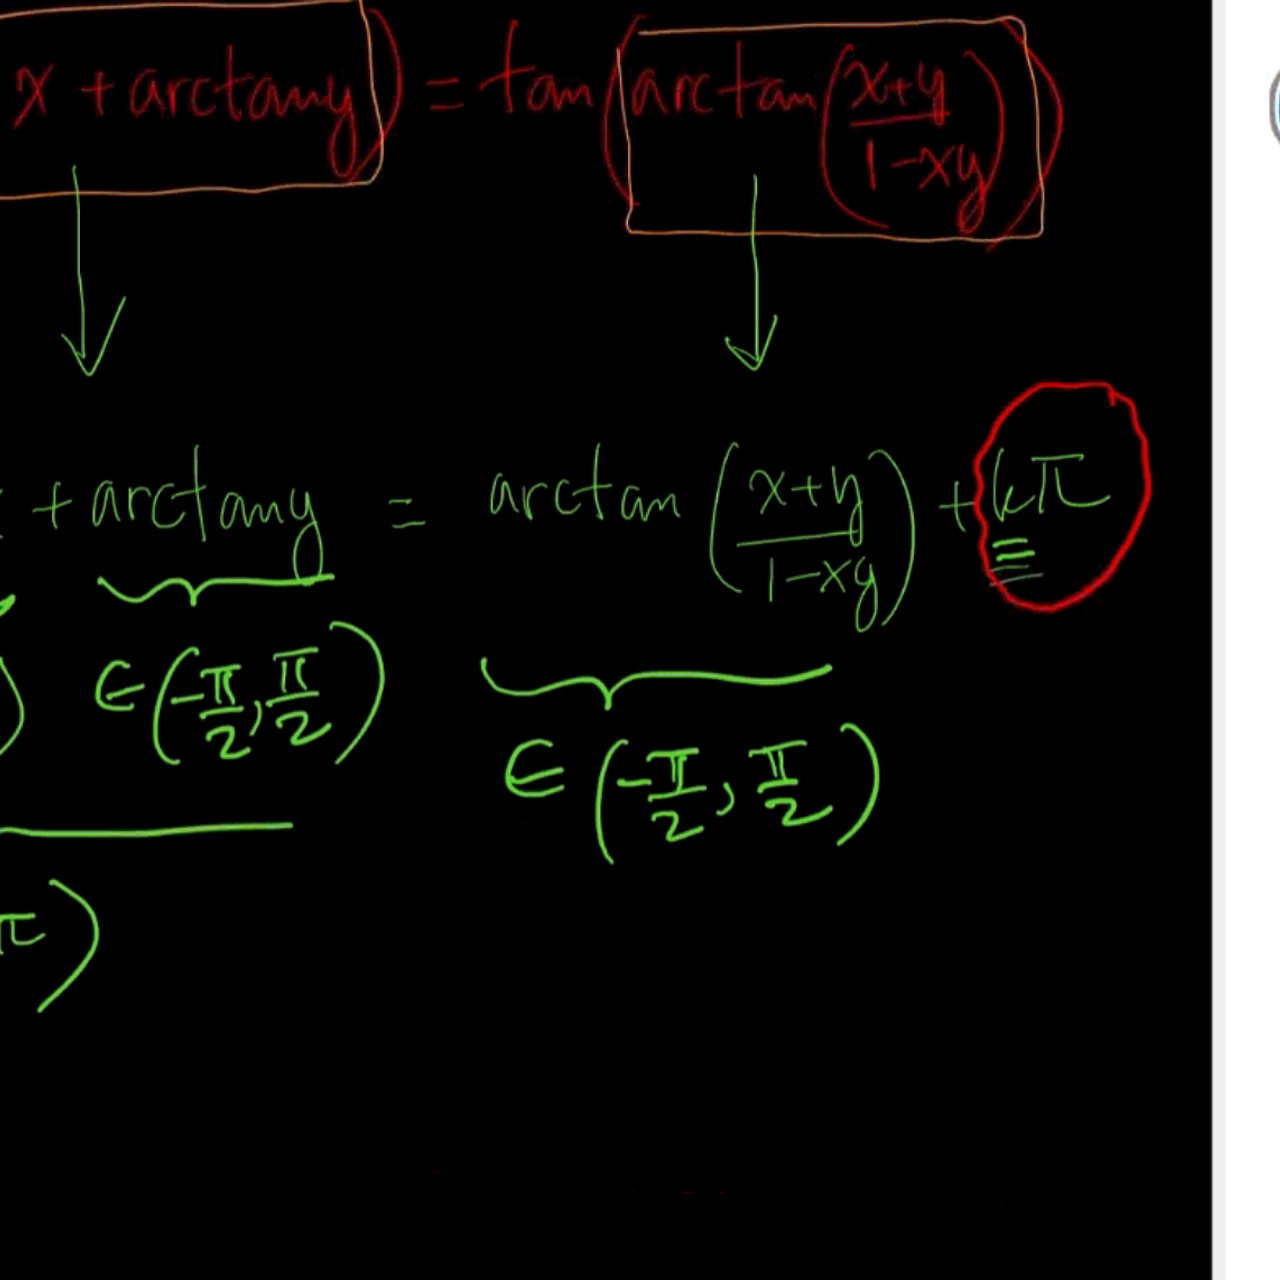 x + arctany) = tan(arctan((x+y)/(1-xy)))
+ arctany = arctan((x+y)/(1-xy)) + kπ
) ∈ (-π/2, π/2)
∈ (-π/2, π/2)
π)